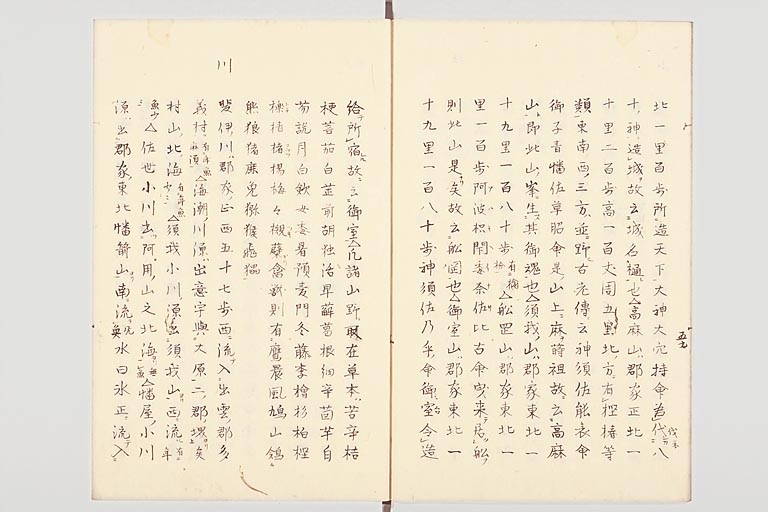 北一里百歩所造天下大神大穴持命為代八
十神造城故云城名樋也高麻山郡家正北一
十里二百歩高一百丈周五里北方有樫椿等
類東南西三方並野古老傳云神須佐能袁命
御子青幡佐草昭命是山上麻蒔祖故云高麻
山即此山峯生其御魂也須我山郡家東北一
十九里一百八十歩有檜枌舩罡山郡家東北一
里一百歩阿波枳閇委奈佐比古命曳来居舩
則此山是矣故云舩罡也御室山郡家東北一
十九里一百八十歩神須佐乃乎命御室令造
五七
給所宿故云御室凡諸山野所在草木苦辛桔
梗菩茄白芷前胡独活旱薜葛根細辛茵芋白
芴説月白歛女委暑預麦門冬藤李檜杉柏樫
櫟椿楮楊梅々槻蘗禽獣則有鷹晨風鳩山鶏
熊狼猪鹿兎猕猴飛鼯
川
斐伊川郡家正西五十七歩西流入出雲郡多
義村有年魚麻須海潮川源出意宇與大原二郡堺矣
村山北海有年魚少々須我小川源出須我山西流有年
魚少々佐世小川出阿用山之北海無魚幡屋小川
源出郡家東北幡箭山南流無魚水四水正流入